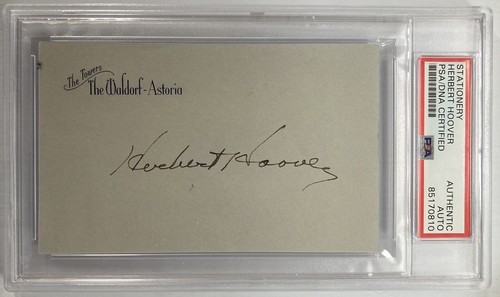 The Towers
The Waldorf-Astoria
Herbert Hoover
STATIONERY
HERBERT HOOVER
PSA/DNA CERTIFIED
PSA
AUTHENTIC
AUTO
85170810